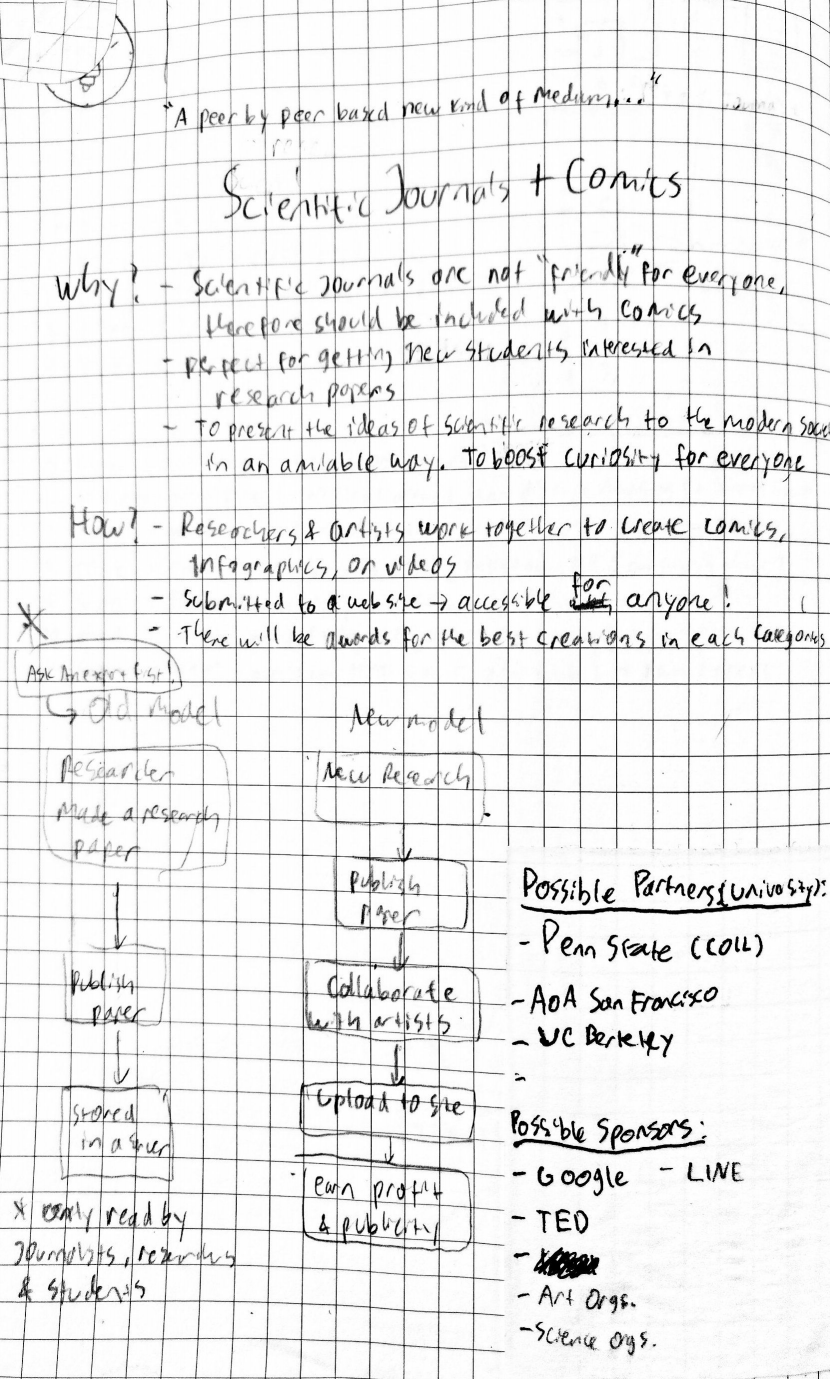 "A peer by peer based new kind of medium..."
Scientific Journals + Comics
Why? - Scientific Journals are not "friendly" for everyone,
therefore should be included with comics
- perfect for getting new students interested in
research papers
- To present the ideas of scientific research to the modern
in an amiable way. To boost curiosity for everyone
How? - Researchers & artists work together to create comics,
infographics, or videos
- Submitted to a website → accessible for anyone!
- There will be awards for the best creations in each categories
Ask An expert first!
Old Model
Researcher
made a research
paper
Publish
paper
Stored
in a
* only read by
Journalists, researchers
& students
New model
New Research
Publish
paper
Collaborate
with artists
Upload to site
earn profit
& publicity
Possible Partners (univosity):
- Penn State (COIL)
- AoA San Francisco
- UC Berkeley
-
Possible Sponsors:
- Google - LINE
- TED
-
- Art Orgs.
- Science orgs.